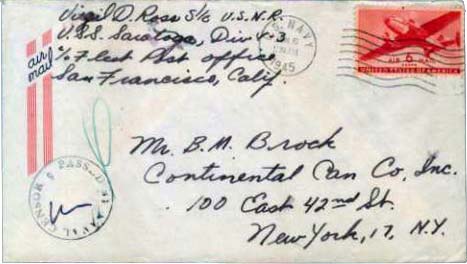 Virgil D. Ross S/c U.S.N.R.
U.S.S. Saratoga, Div V-3
c/o Fleet Post Office
San Francisco, Calif.
air mail
U.S. NAVY
1945
AIR 6 MAIL
CENTS
UNITED STATES OF AMERICA
PASSED BY NAVAL CENSOR
Mr. B.M. Brock
Continental Can Co, Inc.
100 East 42nd St.
New York, 17, N.Y.